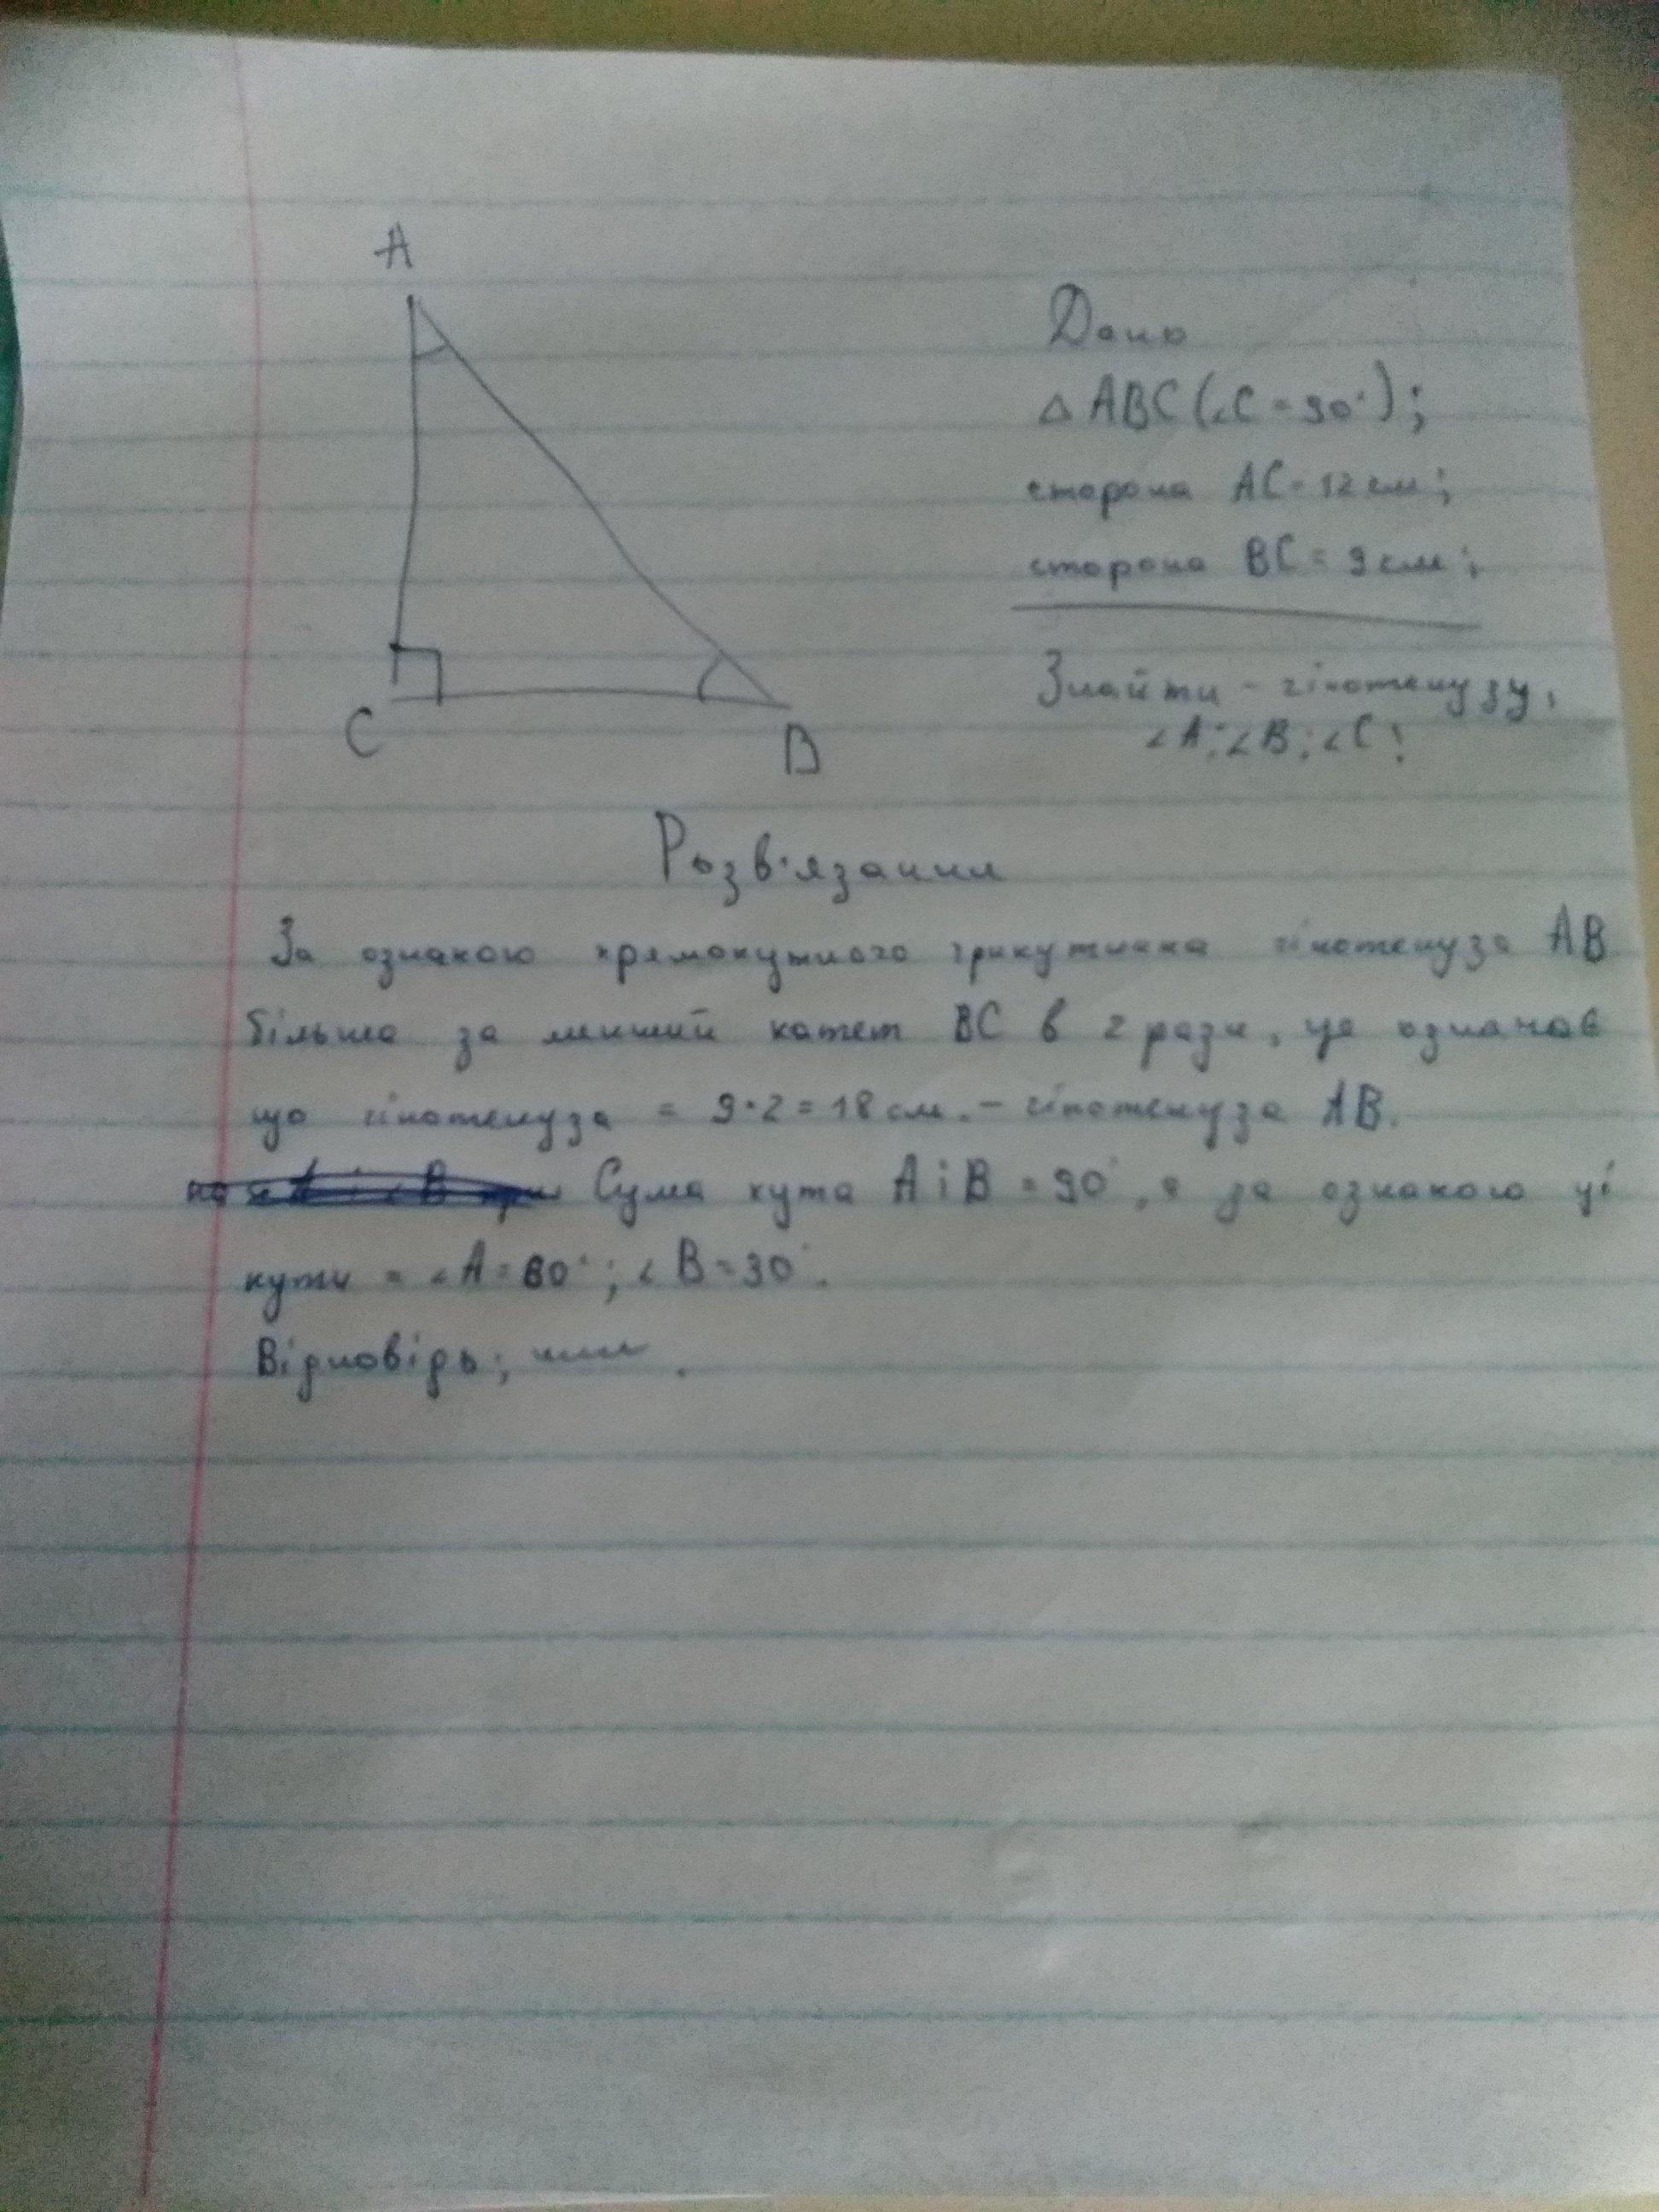 A
C
B
Дано
△ ABC (∠C = 90°);
сторона AC = 12 см;
сторона BC = 9 см;
Знайти - гіпотенузу,
∠A; ∠B; ∠C!
Розв'язання
За ознакою прямокутного трикутника гіпотенуза AB
більша за менший катет BC в 2 рази, це означає
що гіпотенуза = 9·2 = 18 см. - гіпотенуза AB.
Сума кута A і B = 90°, а за ознакою ці
кути = ∠A = 60°; ∠B = 30°.
Відповідь;